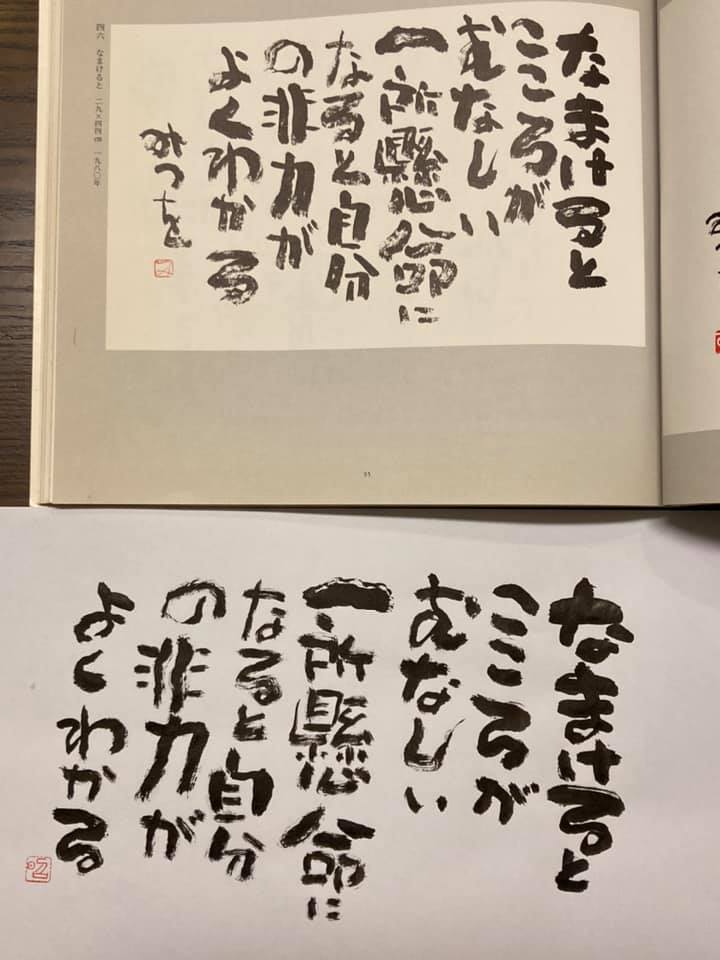 なまけると
こころが
むなしい
一所懸命に
なると自分
の非力が
よくわかる
みつを
四六 なまけると 二九×四四㎝ 一九八〇年
なまけると
こころが
むなしい
一所懸命に
なると自分
の非力が
よくわかる